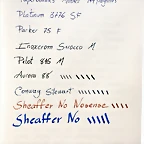 Platinum 3776 SF
Parker 75 F
Inoxcrom Sirocco M
Pilot 845 M
Aurora 88
Conway Stewart
Sheaffer No Nonsense
Sheaffer No